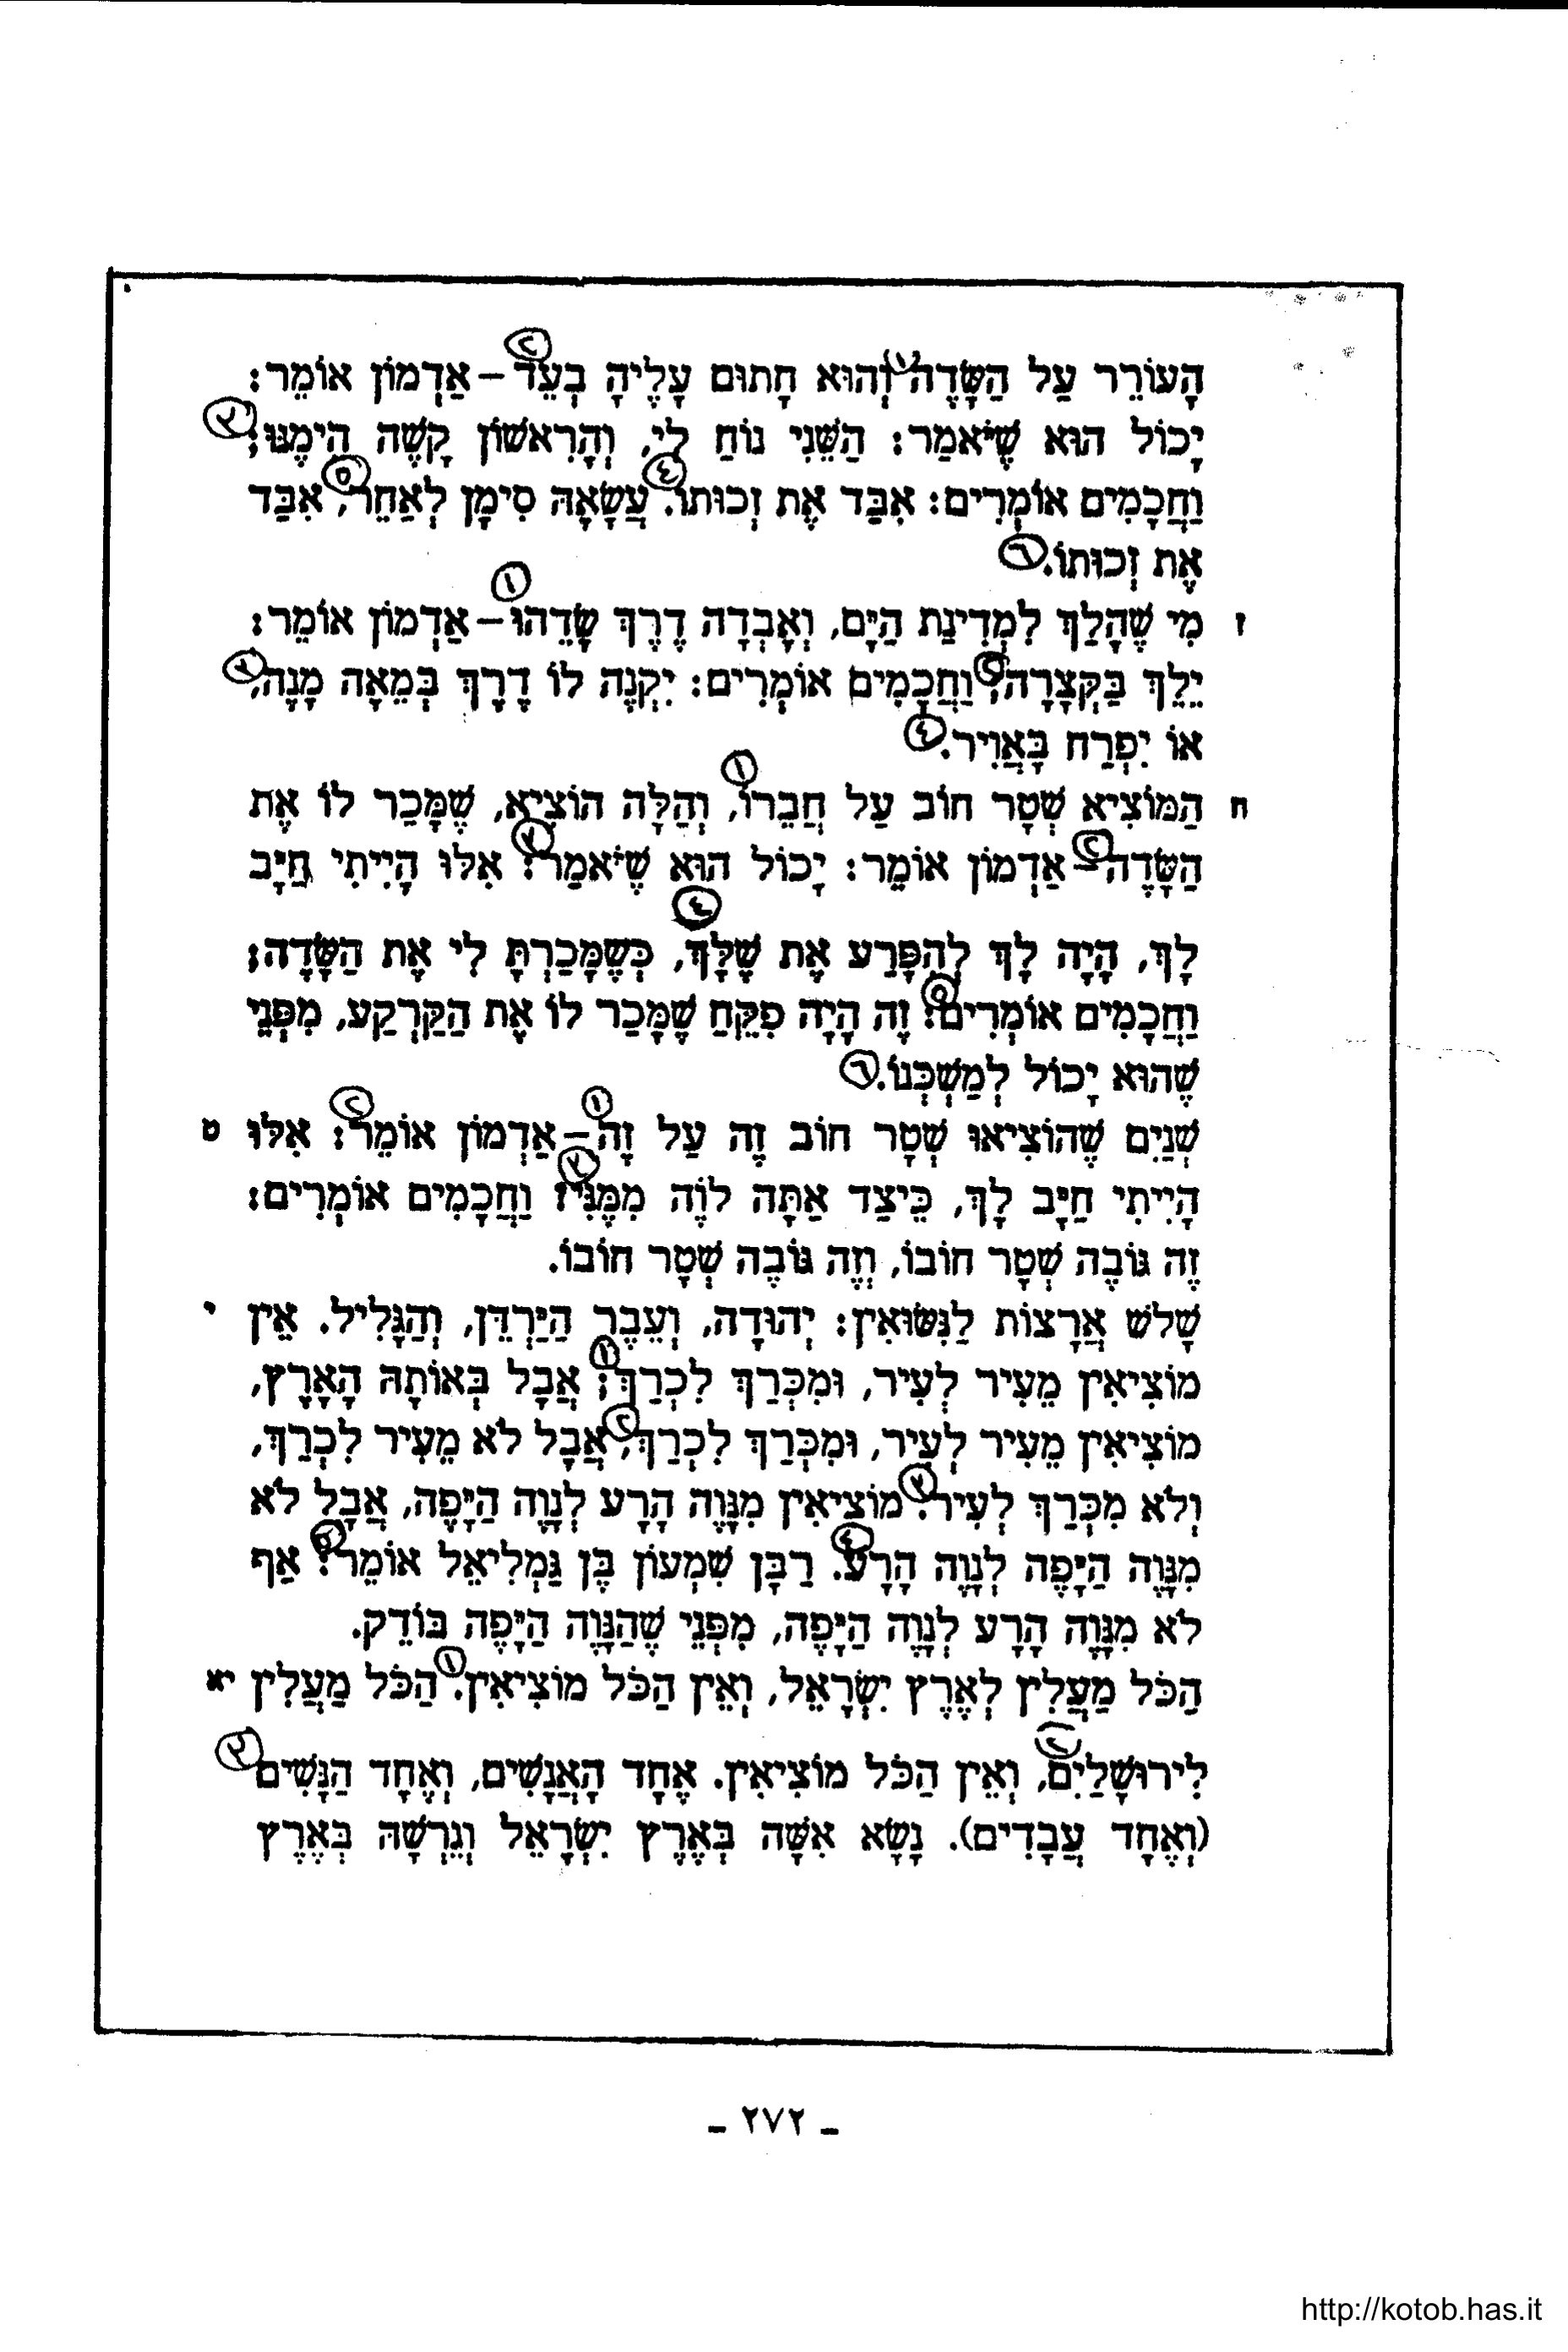 הָעוֹרֵר עַל הַשָּׂדֶה (١) וְהוּא חָתוּם עָלֶיהָ בְעֵד (٢) – אַדְמוֹן אוֹמֵר:
יָכוֹל הוּא שֶׁיֹּאמַר: הַשֵּׁנִי נוֹחַ לִי, וְהָרִאשׁוֹן קָשֶׁה הֵימֶנּוּ; (٣)
וַחֲכָמִים אוֹמְרִים: אִבַּד אֶת זְכוּתוֹ. (٤) עֲשָׂאָהּ סִימָן לְאַחֵר, (٥) אִבַּד
אֶת זְכוּתוֹ. (٦)
ז מִי שֶׁהָלַךְ לִמְדִינַת הַיָּם, וְאָבְדָה דֶרֶךְ שָׂדֵהוּ (١) – אַדְמוֹן אוֹמֵר:
יֵלֵךְ בַּקְּצָרָה; (٢) וַחֲכָמִים אוֹמְרִים: יִקְנֶה לוֹ דֶרֶךְ בְּמֵאָה מָנֶה, (٣)
אוֹ יִפְרַח בָּאֲוִיר. (٤)
ח הַמּוֹצִיא שְׁטָר חוֹב עַל חֲבֵרוֹ, (١) וְהַלָּה הוֹצִיא, שֶׁמָּכַר לוֹ אֶת
הַשָּׂדֶה (٢) – אַדְמוֹן אוֹמֵר: יָכוֹל הוּא שֶׁיֹּאמַר: (٣) אִלּוּ הָיִיתִי חַיָּב
לָךְ, הָיָה לָךְ לְהִפָּרַע אֶת שֶׁלָּךְ, (٤) כְּשֶׁמָּכַרְתָּ לִי אֶת הַשָּׂדֶה;
וַחֲכָמִים אוֹמְרִים: (٥) זֶה הָיָה פִקֵּחַ שֶׁמָּכַר לוֹ אֶת הַקַּרְקַע, מִפְּנֵי
שֶׁהוּא יָכוֹל לְמַשְׁכְּנוֹ. (٦)
ט שְׁנַיִם שֶׁהוֹצִיאוּ שְׁטָר חוֹב זֶה עַל זֶה (١) – אַדְמוֹן אוֹמֵר: (٢) אִלּוּ
הָיִיתִי חַיָּב לָךְ, כֵּיצַד אַתָּה לוֹוֶה מִמֶּנִּי? (٣) וַחֲכָמִים אוֹמְרִים:
זֶה גּוֹבֶה שְׁטָר חוֹבוֹ, וְזֶה גּוֹבֶה שְׁטָר חוֹבוֹ.
י שָׁלֹשׁ אֲרָצוֹת לַנִּשּׂוּאִין: יְהוּדָה, וְעֵבֶר הַיַּרְדֵּן, וְהַגָּלִיל. אֵין
מוֹצִיאִין מֵעִיר לְעִיר, וּמִכְּרַךְ לִכְרַךְ; (١) אֲבָל בְּאוֹתָהּ הָאָרֶץ,
מוֹצִיאִין מֵעִיר לְעִיר, וּמִכְּרַךְ לִכְרַךְ, (٢) אֲבָל לֹא מֵעִיר לִכְרַךְ,
וְלֹא מִכְּרַךְ לְעִיר. (٣) מוֹצִיאִין מִנָּוֶה הָרָע לְנָוֶה הַיָּפֶה, אֲבָל לֹא
מִנָּוֶה הַיָּפֶה לְנָוֶה הָרָע. (٤) רַבָּן שִׁמְעוֹן בֶּן גַּמְלִיאֵל אוֹמֵר: (٥) אַף
לֹא מִנָּוֶה הָרָע לְנָוֶה הַיָּפֶה, מִפְּנֵי שֶׁהַנָּוֶה הַיָּפֶה בּוֹדֵק.
יא הַכֹּל מַעֲלִין לְאֶרֶץ יִשְׂרָאֵל, וְאֵין הַכֹּל מוֹצִיאִין. (١) הַכֹּל מַעֲלִין
לִירוּשָׁלַיִם, (٢) וְאֵין הַכֹּל מוֹצִיאִין. אֶחָד הָאֲנָשִׁים, וְאֶחָד הַנָּשִׁים (٣)
(וְאֶחָד עֲבָדִים). נָשָׂא אִשָּׁה בְּאֶרֶץ יִשְׂרָאֵל וְגֵרְשָׁהּ בְּאֶרֶץ
ـ ٢٧٢ ـ
http://kotob.has.it